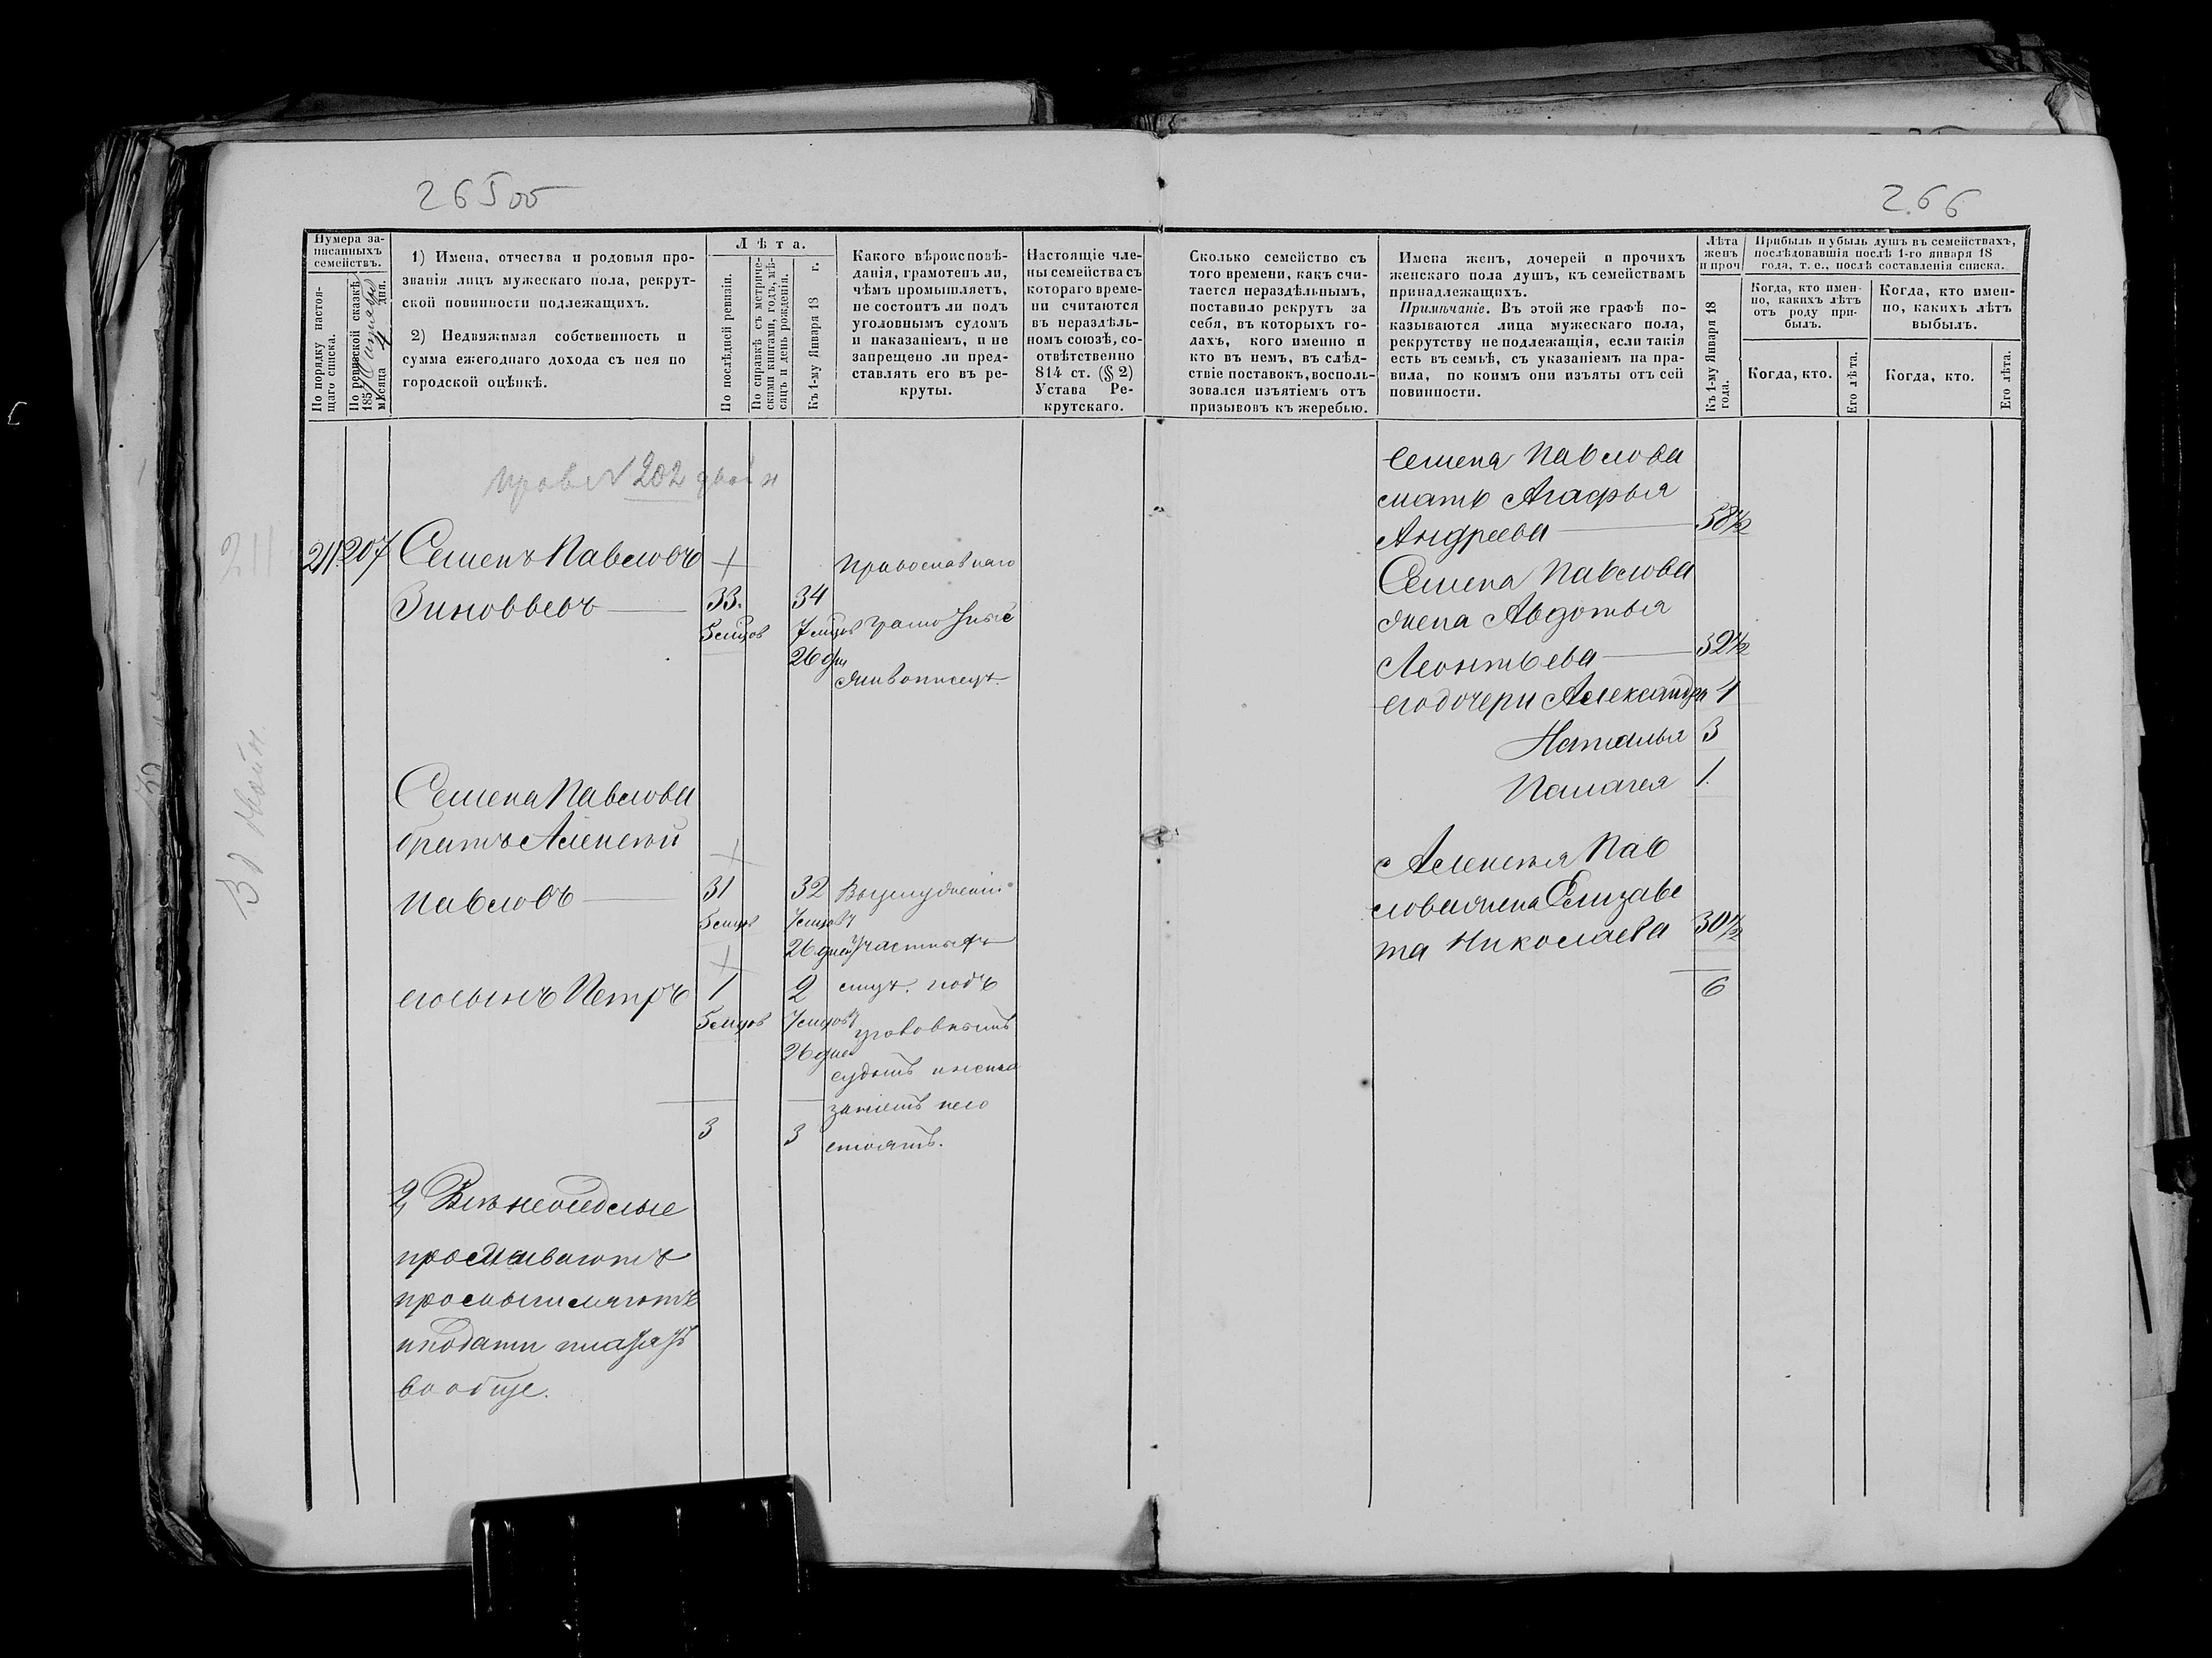 265 об
266
Нумера записанныхъ семействъ.
По порядку настоящаго списка.
По ревизской сказкѣ 1850 мѣсяца 4 дня.
1) Имена, отчества и родовыя прозванія лицъ мужескаго пола, рекрутской повинности подлежащихъ.
2) Недвижимая собственность и сумма ежегоднаго дохода съ нея по городской оцѣнкѣ.
Лѣта.
По послѣдней ревизіи.
По справкѣ съ метрическими книгами, годъ, мѣсяцъ и день рожденія.
Къ 1-му Января 18 г.
Какого вѣроисповѣданія, грамотенъ ли, чѣмъ промышляетъ, не состоитъ ли подъ уголовнымъ судомъ и наказаніемъ, и не запрещено ли представлять его въ рекруты.
Настоящіе члены семейства съ котораго времени считаются въ нераздѣльномъ союзѣ, соотвѣтственно 814 ст. (§ 2) Устава Рекрутскаго.
Сколько семейство съ того времени, какъ считается нераздѣльнымъ, поставило рекрутъ за себя, въ которыхъ годахъ, кого именно и кто въ немъ, въ слѣдствіе поставокъ, воспользовался изъятіемъ отъ призывовъ къ жеребью.
Имена женъ, дочерей и прочихъ женскаго пола душъ, къ семействамъ принадлежащихъ.
Примѣчаніе. Въ этой же графѣ показываются лица мужескаго пола, рекрутству не подлежащія, если такія есть въ семьѣ, съ указаніемъ на правила, по коимъ они изъяты отъ сей повинности.
Лѣта женъ и проч
Къ 1-му Января 18 года.
Прибыль и убыль душъ въ семействахъ, послѣдовавшія послѣ 1-го января 18 года, т. е., послѣ составленія списка.
Когда, кто именно, какихъ лѣтъ отъ роду прибылъ.
Когда, кто именно, какихъ лѣтъ выбылъ.
Когда, кто.
Его лѣта.
Когда, кто.
Его лѣта.
№ 202
211
211 207 Семенъ Павловъ
Зиновьевъ — 33. 34
5 мцов 7 мцов
26 дн
Православнаго
грамотные
живописцъ
Семена Павлова
братъ Алексѣй
Павловъ — 31 32
5 мцов 7 мцовъ
26 дней
его сынъ Петръ 1 2
5 мцов 7 мцовъ
26 дней
3 3
въ услуженіи
у частныхъ
лицъ. подъ
уголовнымъ
судомъ и нака
заніемъ не со
стоятъ.
2, Всѣ неоседлые
проживаютъ
промышляютъ
и подати платятъ
вообще.
Семена Павлова
мать Агафья
Андреева — 58 1/2
Семена Павлова
жена Авдотья
Леонтьева — 32 1/2
его дочери Александра 4
Наталья 3
Палагея 1.
Алексѣя Пав
лова жена Елизаве
та Николаева 30 1/2
6